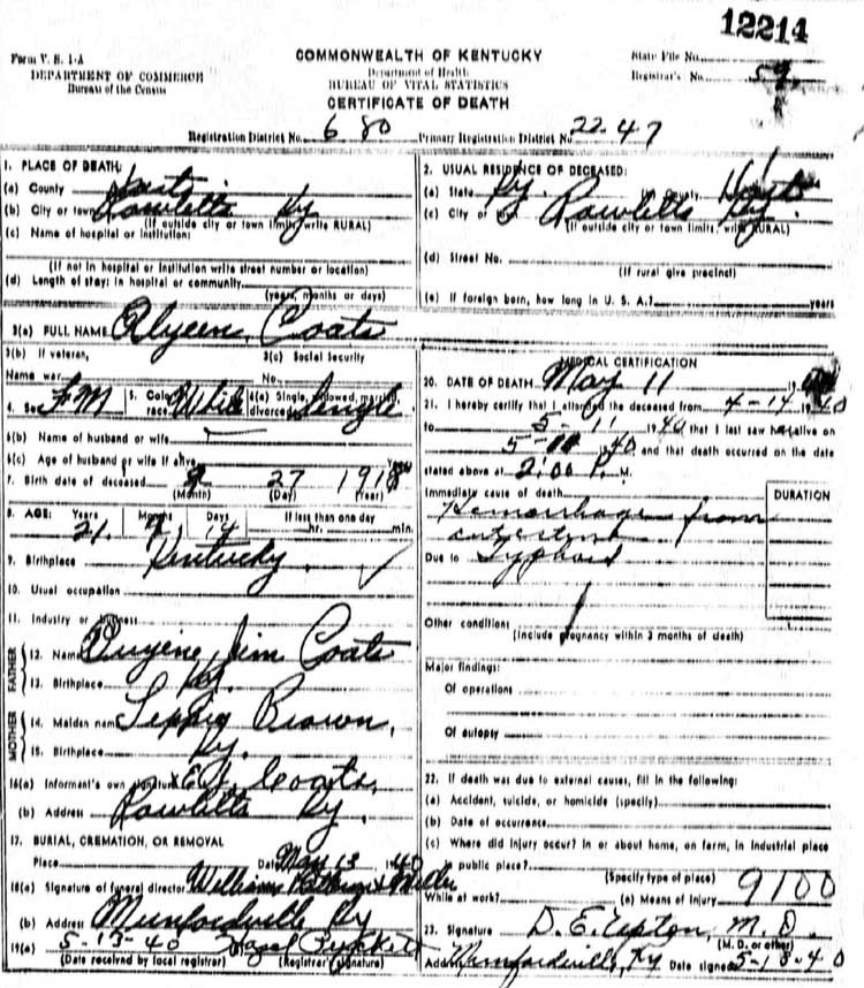 12214
Form V. S. 1-A
DEPARTMENT OF COMMERCE
Bureau of the Census
COMMONWEALTH OF KENTUCKY
Department of Health
BUREAU OF VITAL STATISTICS
CERTIFICATE OF DEATH
State File No.
Registrar's No. 59
Registration District No. 680 Primary Registration District No. 2247
1. PLACE OF DEATH:
(a) County Hart
(b) City or town Rowletts Ky
(If outside city or town limits, write RURAL)
(c) Name of hospital or institution:
(If not in hospital or institution write street number or location)
(d) Length of stay: in hospital or community
(years, months or days)
2. USUAL RESIDENCE OF DECEASED:
(a) State Ky. (b) County Hart
(c) City or town Rowletts Ky.
(If outside city or town limits, write RURAL)
(d) Street No.
(If rural give precinct)
(e) If foreign born, how long in U. S. A.? years
3(a) FULL NAME Alyeen Coats
3(b) If veteran,
Name war
3(c) Social Security
No.
4. Sex Fm 5. Color or race White 6(a) Single, widowed, married, divorced Single
6(b) Name of husband or wife
6(c) Age of husband or wife if alive years
7. Birth date of deceased 27 1918
(Month) (Day) (Year)
8. AGE: Years Months Days If less than one day
21 14 hr. min.
9. Birthplace Kentucky
10. Usual occupation
11. Industry or business
FATHER
12. Name Eugene Jim Coats
13. Birthplace Ky.
MOTHER
14. Maiden name Brown
15. Birthplace Ky.
16(a) Informant's own signature x E. J. Coats
(b) Address Rowletts Ky.
17. BURIAL, CREMATION, OR REMOVAL
Place Date May 13 1940
18(a) Signature of funeral director William
(b) Address Munfordville Ky
19(a) 5-13-40 Hazel
(Date received by local registrar) (Registrar's signature)
MEDICAL CERTIFICATION
20. DATE OF DEATH May 11 1940
21. I hereby certify that I attended the deceased from 4-14 1940
to 5-11 1940 that I last saw her alive on
5-11 40 and that death occurred on the date
stated above at 2:00 P. M.
Immediate cause of death DURATION
Hemorrhage from
intestine
Due to Typhoid
Other conditions
(Include pregnancy within 3 months of death)
Major findings:
Of operations
Of autopsy
22. If death was due to external causes, fill in the following:
(a) Accident, suicide, or homicide (specify)
(b) Date of occurrence
(c) Where did injury occur? In or about home, on farm, in industrial place
in public place?
(Specify type of place)
While at work? (e) Means of Injury 9100
23. Signature D. E. Upton, M. D.
(M. D. or other)
Address Munfordville, Ky Date signed 5-13-40